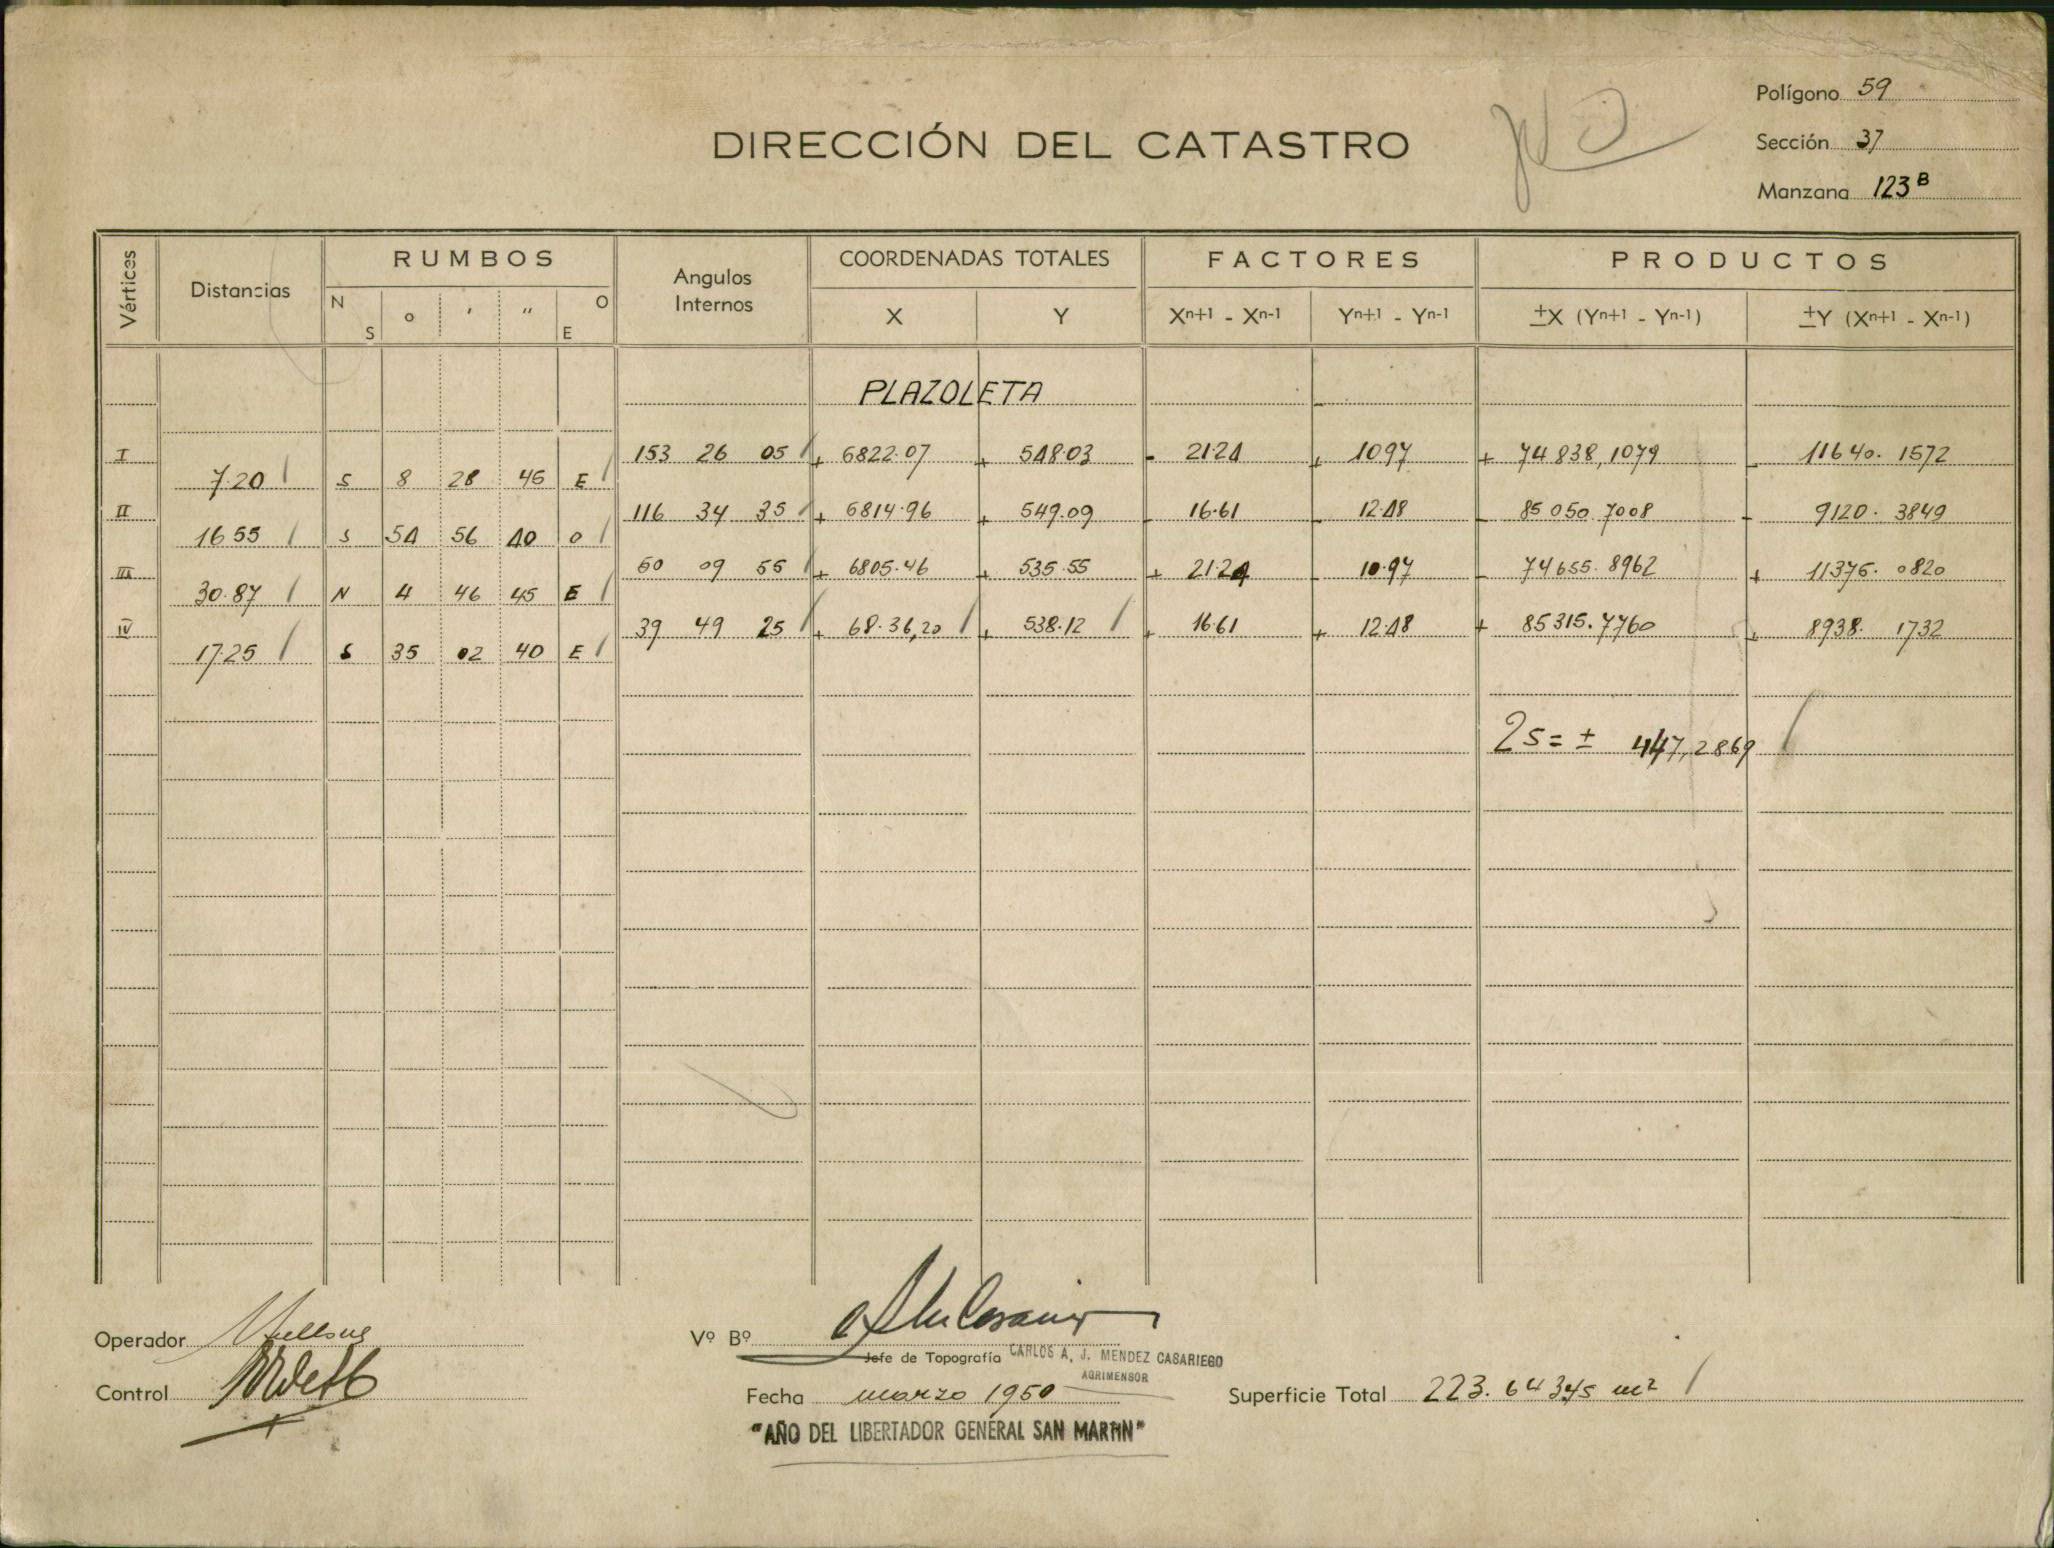 Polígono 59
DIRECCIÓN DEL CATASTRO
Sección 37
Manzana 123 B
Vértices Distancias RUMBOS Angulos Internos COORDENADAS TOTALES FACTORES PRODUCTOS
N S o ' " O E X Y Xn+1 - Xn-1 Yn+1 - Yn-1 ±X (Yn+1 - Yn-1) ±Y (Xn+1 - Xn-1)
PLAZOLETA
I 153 26 05 + 6822.07 + 548.03 - 21.24 + 10.97 + 74838,1079 - 11640.1572
7.20 S 8 28 45 E
II 116 34 35 + 6814.96 + 549.09 - 16.61 - 12.48 - 85050.7008 - 9120.3849
16.55 S 54 56 40 O
III 50 09 55 + 6805.46 + 535.55 + 21.24 - 10.97 - 74655.8962 + 11375.0820
30.87 N 4 46 45 E
IV 39 49 25 + 68.36,20 + 538.12 + 16.61 + 12.48 + 85315.7760 + 8938.1732
17.25 S 35 02 40 E
2S = ± 447,2869
Operador
Vº Bº
Jefe de Topografía CARLOS A. J. MENDEZ CASARIEGO
AGRIMENSOR
Control
Fecha marzo 1950
Superficie Total 223.64345 m²
"AÑO DEL LIBERTADOR GENERAL SAN MARTIN"